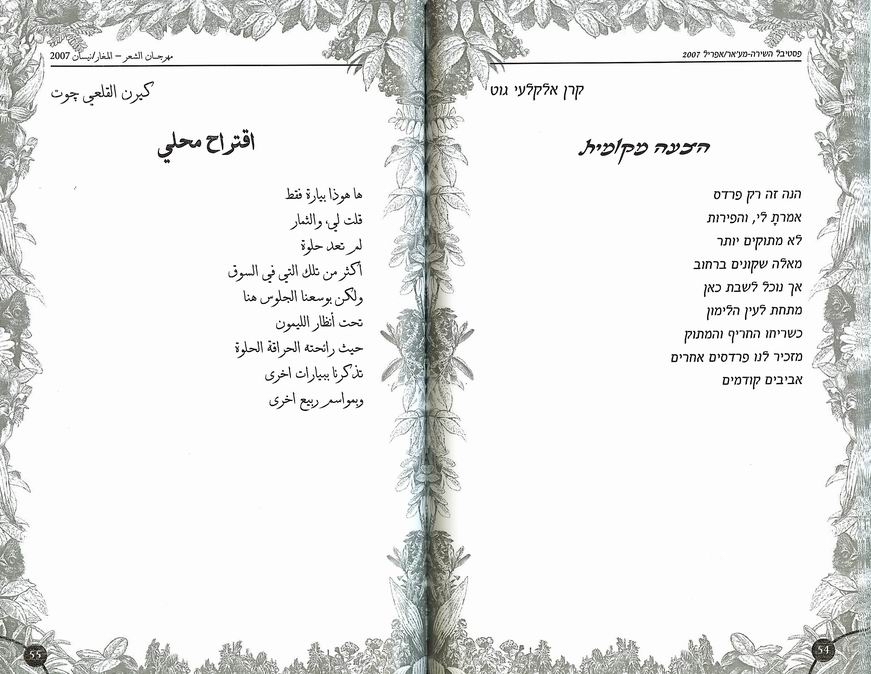 פסטיבל השירה-מע'אר/אפריל 2007
קרן אלקלעי גוט
הצעה מקומית
הנה זה רק פרדס
אמרתָ לי, והפירות
לא מתוקים יותר
מאלה שקונים ברחוב
אך נוכל לשבת כאן
מתחת לעין הלימון
כשריחו החריף והמתוק
מזכיר לנו פרדסים אחרים
אביבים קודמים
54
مهرجان الشعر – المغار/نيسان 2007
كيرن القلعي چوت
اقتراح محلي
ها هوذا بيارة فقط
قلت لي، والثمار
لم تعد حلوة
أكثر من تلك التي في السوق
ولكن بوسعنا الجلوس هنا
تحت أنظار الليمون
حيث رائحته الحراقة الحلوة
تذكرنا ببيارات اخرى
وبمواسم ربيع اخرى
55